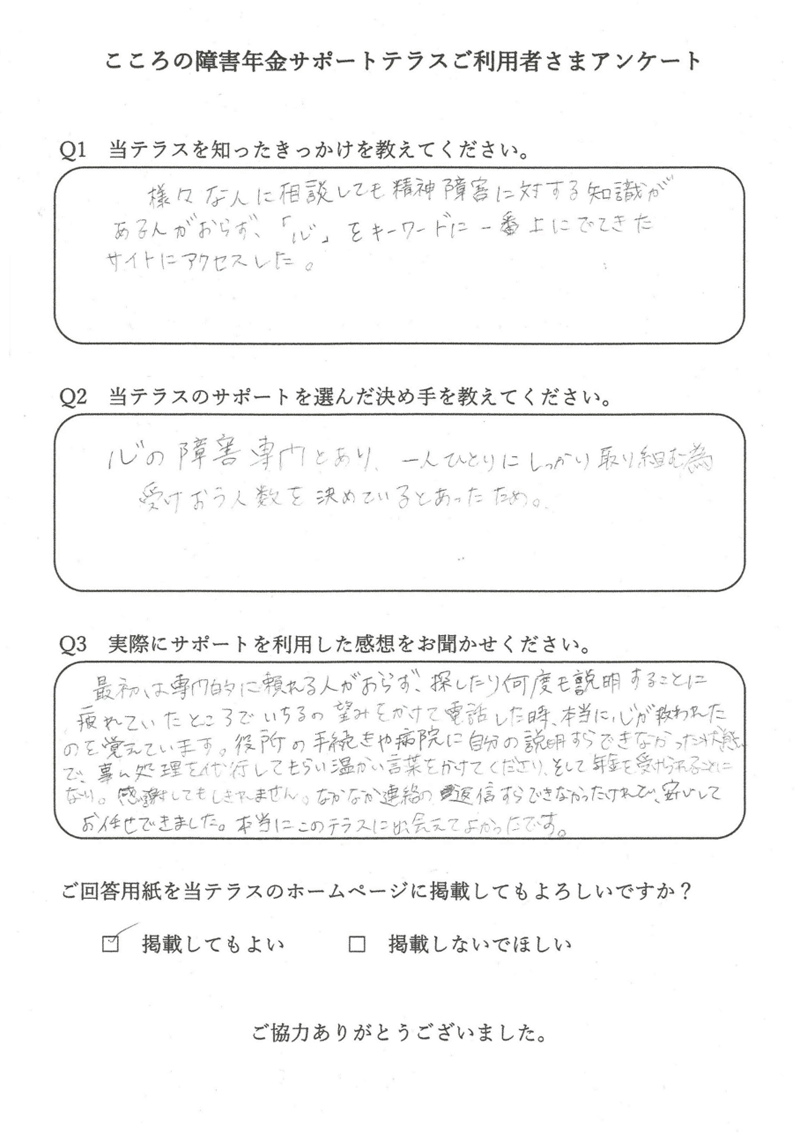 こころの障害年金サポートテラスご利用者さまアンケート
Q1 当テラスを知ったきっかけを教えてください。
様々な人に相談しても精神障害に対する知識が
ある人がおらず、「心」をキーワードに一番上にでてきた
サイトにアクセスした。
Q2 当テラスのサポートを選んだ決め手を教えてください。
心の障害専門とあり、一人ひとりにしっかり取り組む為
受けおう人数を決めているとあったため。
Q3 実際にサポートを利用した感想をお聞かせください。
最初は専門的に頼れる人がおらず、探したり何度も説明することに
疲れていたところでいちるの望みをかけて電話した時、本当に心が救われた
のを覚えています。役所の手続きや病院に自分の説明すらできなかった状態
で、事ム処理を代行してもらい温かい言葉をかけてくださり、そして年金を受けられることに
なり。感謝してもしきれません。なかなか連絡の返信すらできなかったけれど、安心して
お任せできました。本当にこのテラスに出会えてよかったです。
ご回答用紙を当テラスのホームページに掲載してもよろしいですか？
☑ 掲載してもよい □ 掲載しないでほしい
ご協力ありがとうございました。